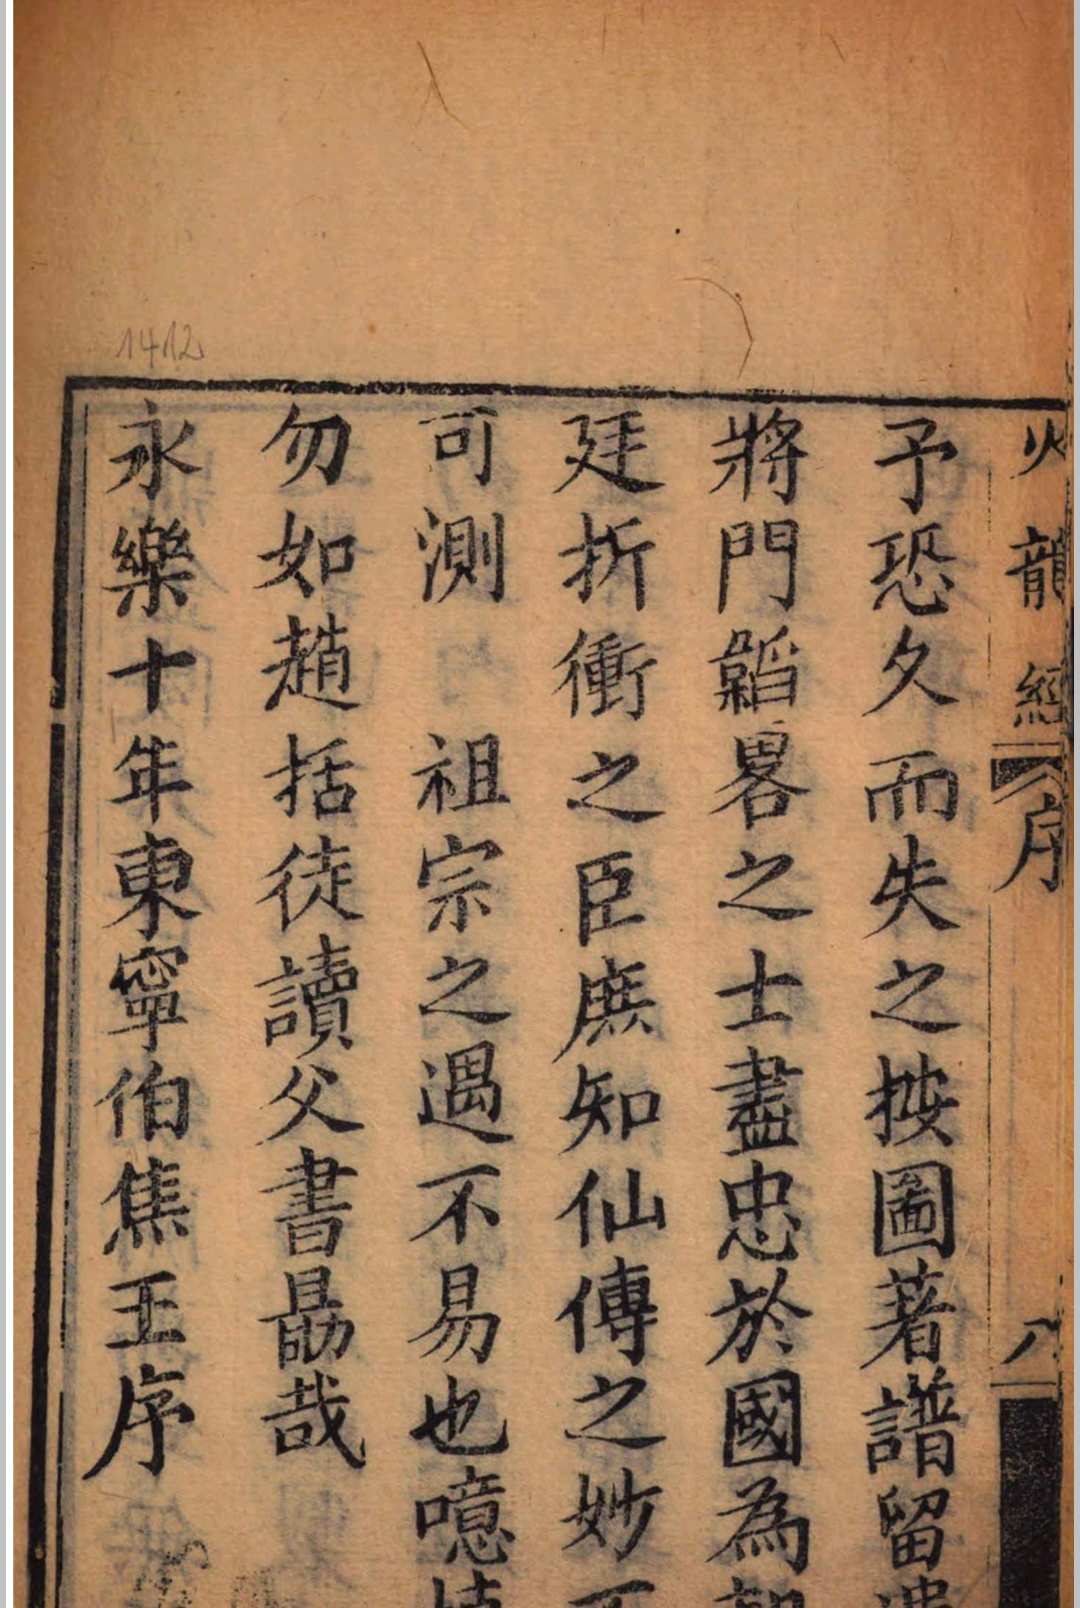 火龍經
序
八
予恐久而失之按圖著譜留遺
將門韜畧之士盡忠於國為朝
廷折衝之臣庶知仙傳之妙不
可測 祖宗之遇不易也噫
勿如趙括徒讀父書勗哉
永樂十年東寧伯焦玉序
1412